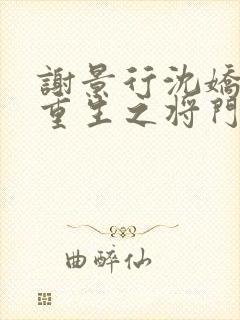 謝景行沈嬌
重生之将門
曲醉仙